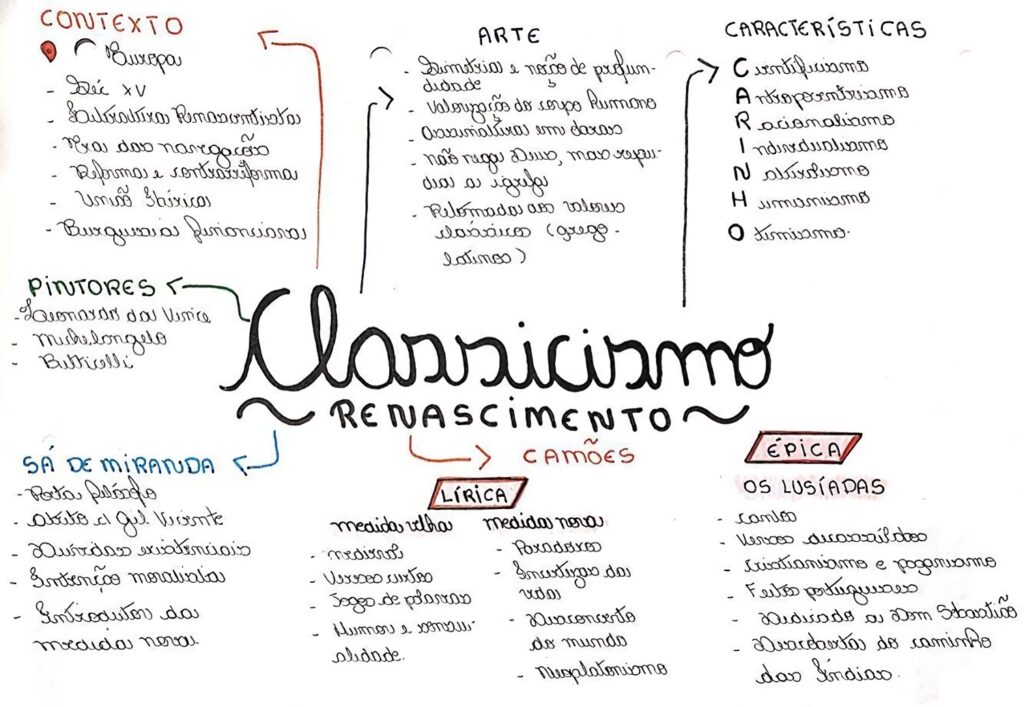 CONTEXTO
Europa
- Séc XV
- Literatura Renascentista
- Era das navegações
- Reforma e contrarreforma
- União Ibérica
- Burguesia financiava
ARTE
- Simetria e noção de profun-
didade
- Valorização do corpo humano
- Assinaturas em obras
- não nega Deus, mas repu-
dia a igreja
- Retomada aos valores
clássicos (greco-
latinos)
CARACTERÍSTICAS
Cientificismo
Antropocentrismo
Racionalismo
Individualismo
Naturalismo
Humanismo
Otimismo.
PINTORES
- Leonardo da Vince
- Michelangelo
- Botticelli
Classicismo
~ RENASCIMENTO ~
SÁ DE MIRANDA
- Poeta filósofo
- atrito c/ Gil Vicente
- Dúvidas existenciais
- Intenção moralista
- Introdutor da
medida nova
CAMÕES
LÍRICA
medida velha
- medieval
- Versos curtos
- Jogos de palavras
- Humor e sensu-
alidade.
medida nova
- Paradoxos
- Incertezas da
vida
- Desconcerto
do mundo
- Neoplatonismo
ÉPICA
OS LUSÍADAS
- cantos
- Versos decassílabos
- cristianismo e paganismo
- Feitos portugueses
- Dedicado a Dom Sebastião
- Descoberta do caminho
das Índias.